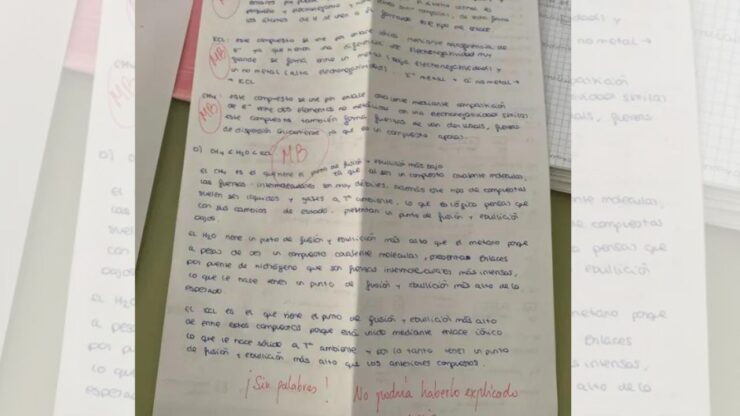 KCl: este compuesto se une por enlace iónico mediante transferencia de
e⁻ ya que tienen una diferencia de electronegatividad muy
grande se forma entre un metal (baja electronegatividad) y
un no metal (alta electronegatividad). K metal + Cl no metal →
→ KCl
MB
CH4: este compuesto se une por enlace covalente mediante compartición
de e⁻ entre dos elementos no metálicos con una electronegatividad similar.
este compuesto también forma fuerzas de van der Waals, fuerzas
de dispersión únicamente ya que es un compuesto apolar.
MB
b) CH4 < H2O < KCl
MB
El CH4 es el que tiene el punto de fusión y ebullición más bajo
ya que al ser un compuesto covalente molecular,
las fuerzas intermoleculares son muy débiles, además este tipo de compuestos
suelen ser líquidos y gases a Tª ambiente, lo que es lógico pensar que
con sus cambios de estado, presentan un punto de fusión y ebullición
bajos.
El H2O tiene un punto de fusión y ebullición más alto que el metano porque
a pesar de ser un compuesto covalente molecular, presentan enlaces
por puente de hidrógeno que son fuerzas intermoleculares más intensas,
lo que le hace tener un punto de fusión y ebullición más alto de lo
esperado
El KCl es el que tiene el punto de fusión y ebullición más alto
de entre estos compuestos porque está unido mediante enlace iónico
lo que le hace sólido a Tª ambiente y por lo tanto tener un punto
de fusión y ebullición más alto que los anteriores compuestos.
¡Sin palabras! No podría haberlo explicado